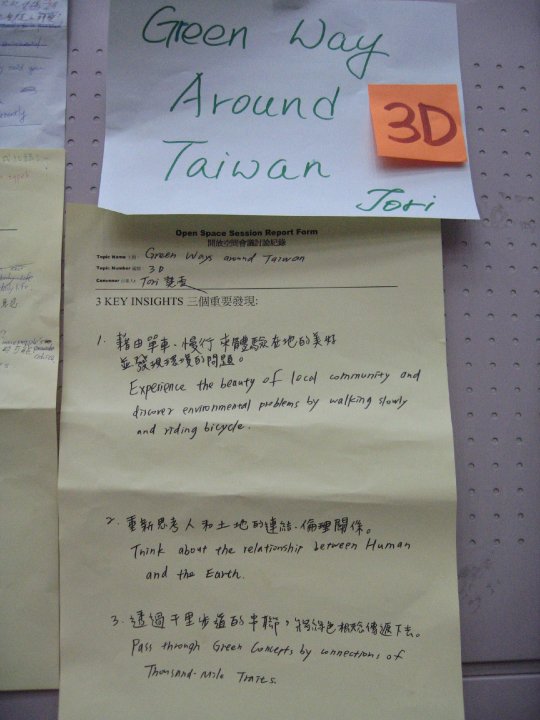 Green Way
Around
Taiwan
3D
Tori
Open Space Session Report Form
開放空間會議討論紀錄
Topic Name 主題: Green Ways around Taiwan
Topic Number 編號: 3D
Convenor 召集人: Tori
3 KEY INSIGHTS 三個重要發現:
1. 藉由單車、慢行來體驗在地的美好
並發現環境的問題。
Experience the beauty of local community and
discover environmental problems by walking slowly
and riding bicycle.
2. 重新思考人和土地的連結、倫理關係。
Think about the relationship between Human
and the Earth.
3. 透過千里步道的串聯，將綠色概念傳遞下去。
Pass through Green Concepts by connections of
Thousand-Mile Trails.